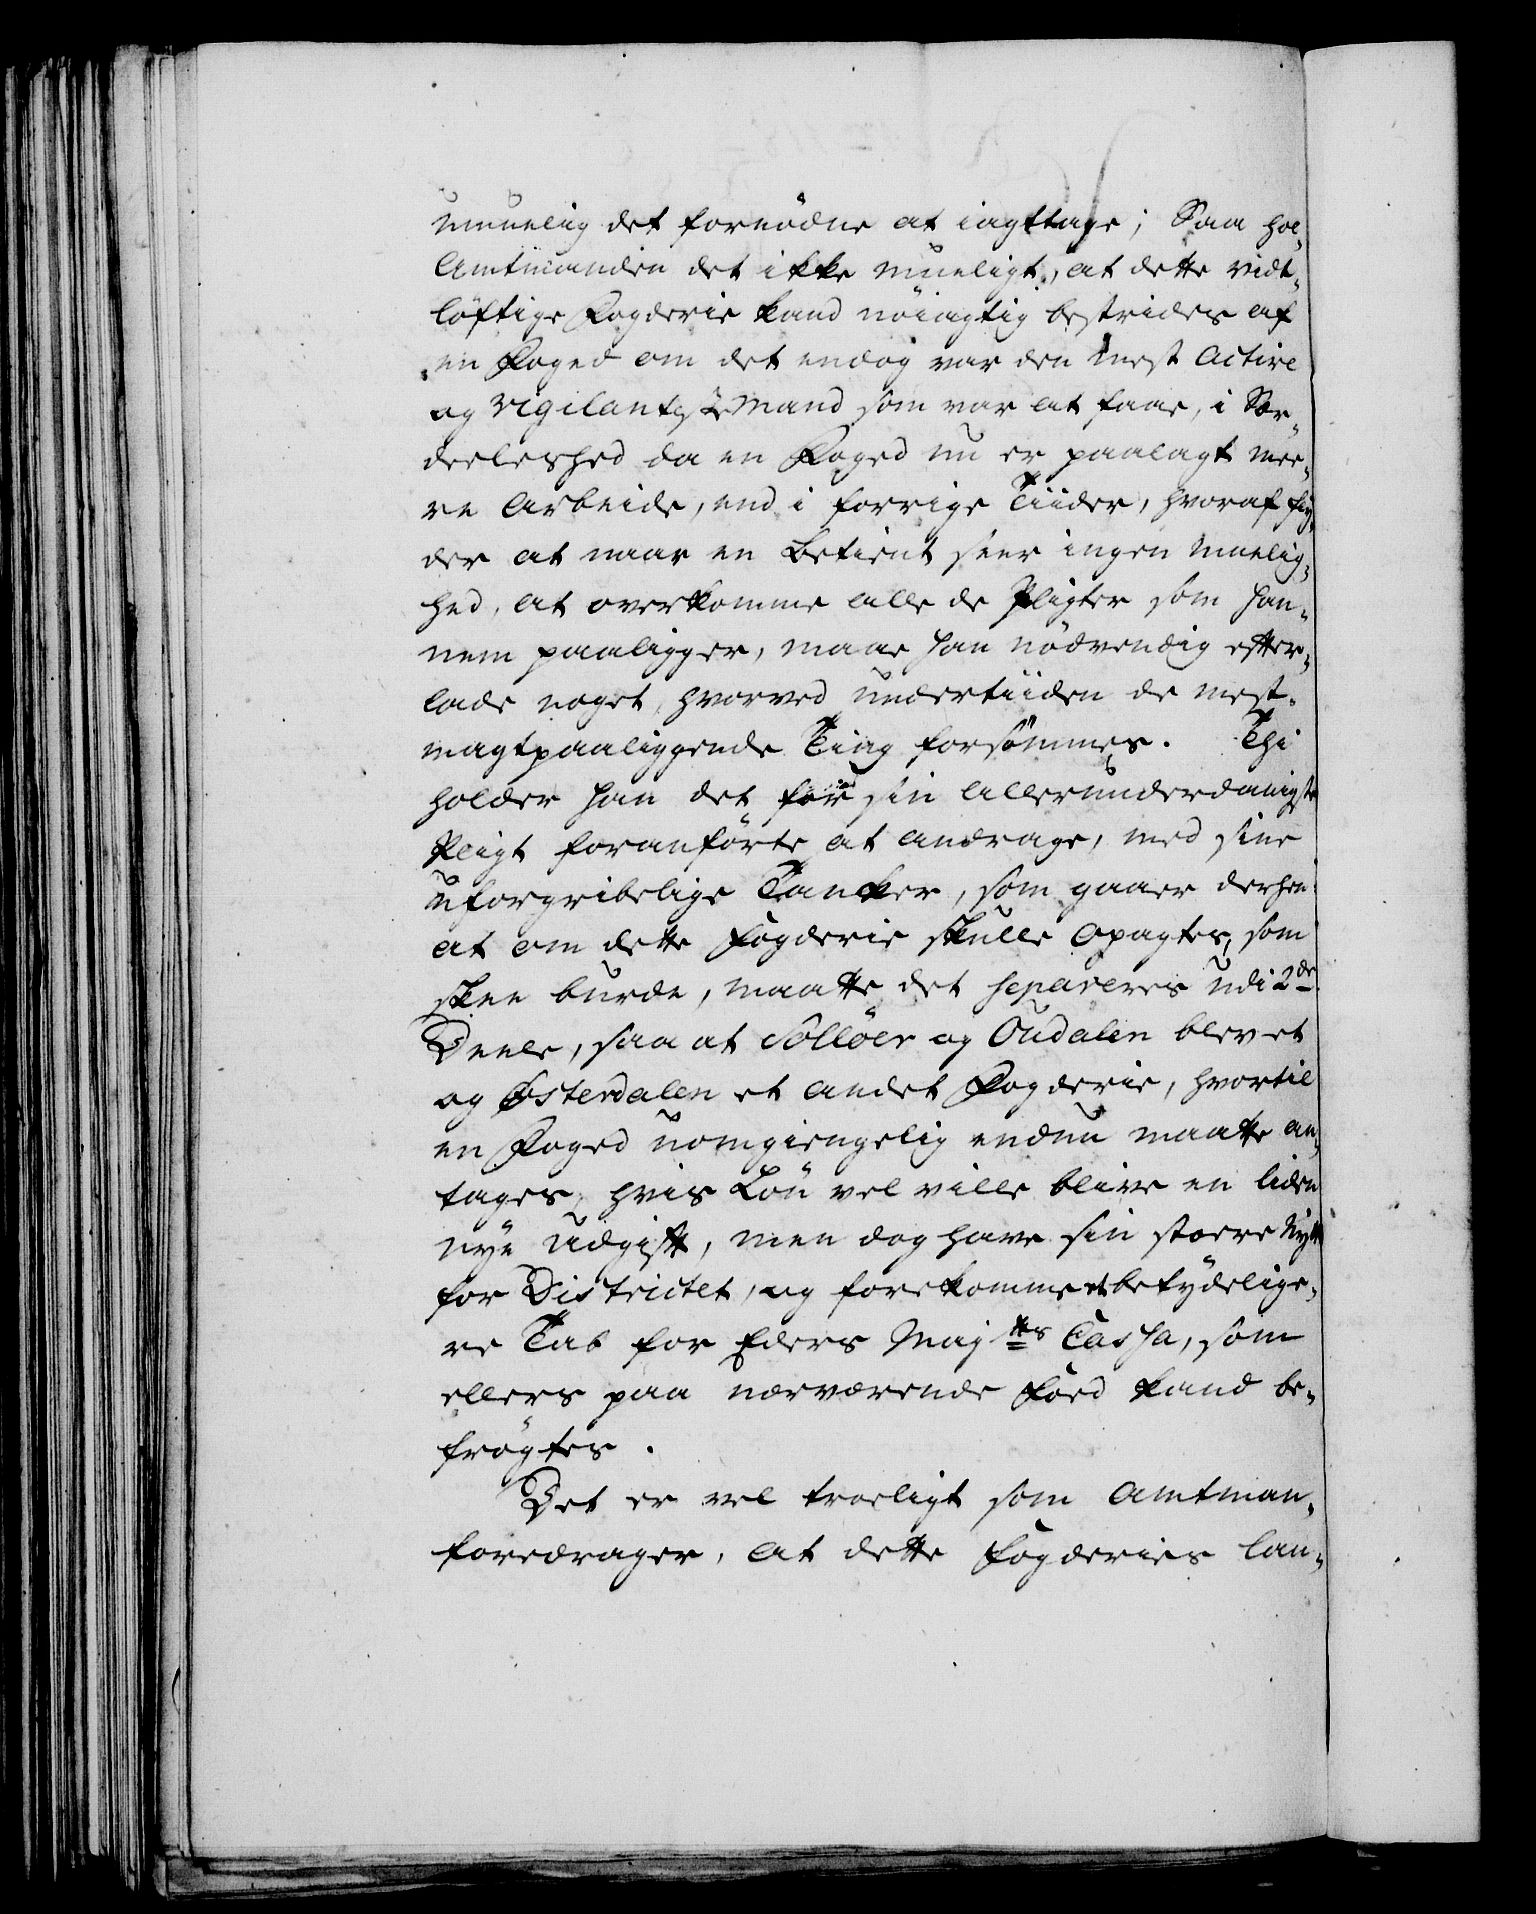 umuelig det fornödne at iagttage; Saa hol-
Amtmanden det ikke mueligt, at dette vidt-
löftige Fogderie kand nöiagtig bestrides af
en Foged om det endog var den mest active
og vigilantste Mand som var at faae, i Sær-
deeleshed da en Foged nu er paalagt mee-
re Arbeide, end i forrige Tiider, hvoraf fly-
der at naar en Betient seer ingen Muelig-
hed, at overkomme alle de Pligter som han-
nem paaligger, maae han nödvendig efter-
lade noget, hvorved undertiiden de mest-
magtpaaliggende Ting forsömmes. Thi
holder han det for sin allerunderdanigste
Pligt foranförte at andrage, med sine
uforgribelige Tancker, som gaaer derhen
at om dette Fogderie skulle opagtes, som
skee burde, maatte det separeres udi 2de
Deele, saa at Sollöer og Oudalen blev et
og Österdalen et andet Fogderie, hvortil
en Foged uomgiengelig endnu maatte an-
tages, hvis Lön vel ville blive en liden
nye Udgift, men dog have sin stoere Nytte
for Districtet, og forekomme et betydelige-
re Tab for Eders Majts Cassa, som
ellers paa nærværende Foed kand be-
frögtes.
Det er vel troeligt som Amtman-
foredrager, at dette Fogderies lan-